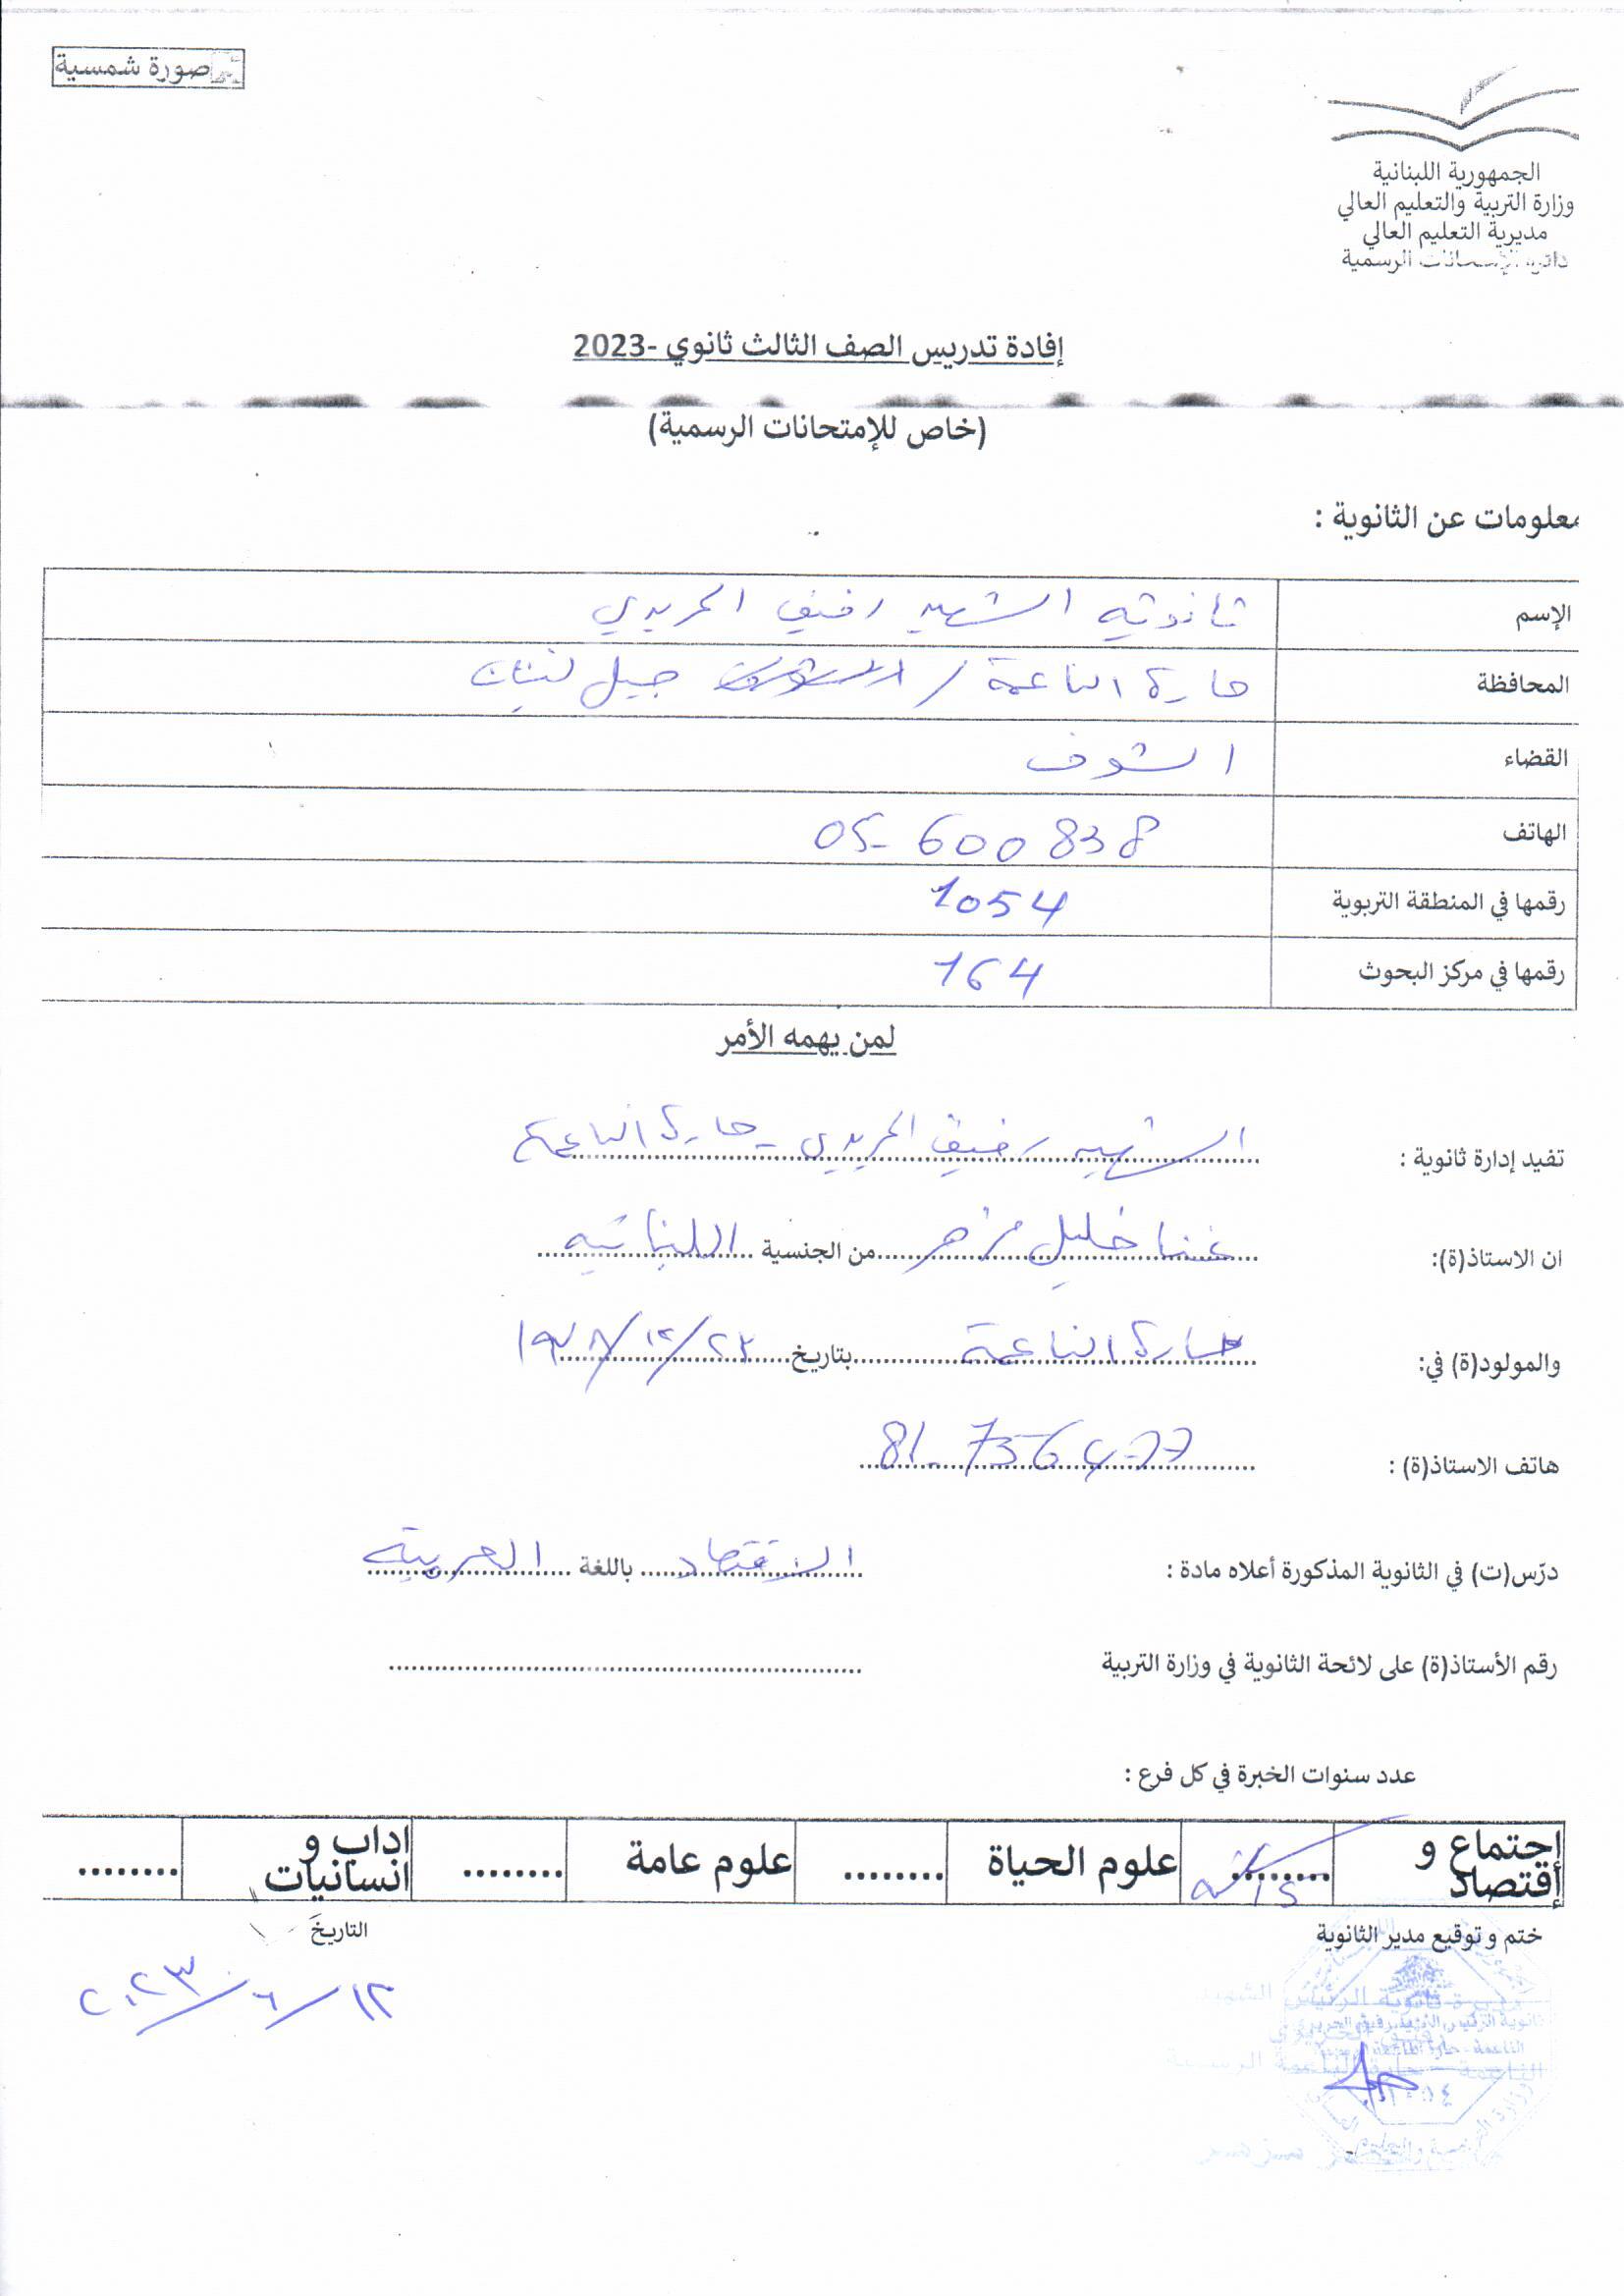 صورة شمسية
الجمهورية اللبنانية
وزارة التربية والتعليم العالي
مديرية التعليم العالي
دائرة الإمتحانات الرسمية
إفادة تدريس الصف الثالث ثانوي -2023
(خاص للإمتحانات الرسمية)
معلومات عن الثانوية :
الإسم ثانوية الشهيد رفيق الحريري
المحافظة حارة الناعمة / جبل لبنان
القضاء الشوف
الهاتف 05-600838
رقمها في المنطقة التربوية 1054
رقمها في مركز البحوث 164
لمن يهمه الأمر
تفيد إدارة ثانوية : الشهيد رفيق الحريري - حارة الناعمة
ان الاستاذ(ة): غنا خليل مزهر من الجنسية اللبنانية
والمولود(ة) في: حارة الناعمة بتاريخ
هاتف الاستاذ(ة) :
درّس(ت) في الثانوية المذكورة أعلاه مادة : الاقتصاد باللغة العربية
رقم الأستاذ(ة) على لائحة الثانوية في وزارة التربية
عدد سنوات الخبرة في كل فرع :
إجتماع و إقتصاد ........ علوم الحياة ........ علوم عامة ........ اداب و انسانيات ........
ختم و توقيع مدير الثانوية التاريخ
١٢/٦/٢٠٢٣